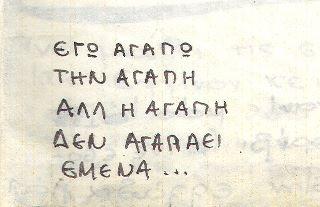 ΕΓΩ ΑΓΑΠΩ
ΤΗΝ ΑΓΑΠΗ
ΑΛΛ Η ΑΓΑΠΗ
ΔΕΝ ΑΓΑΠΑΕΙ
ΕΜΕΝΑ...